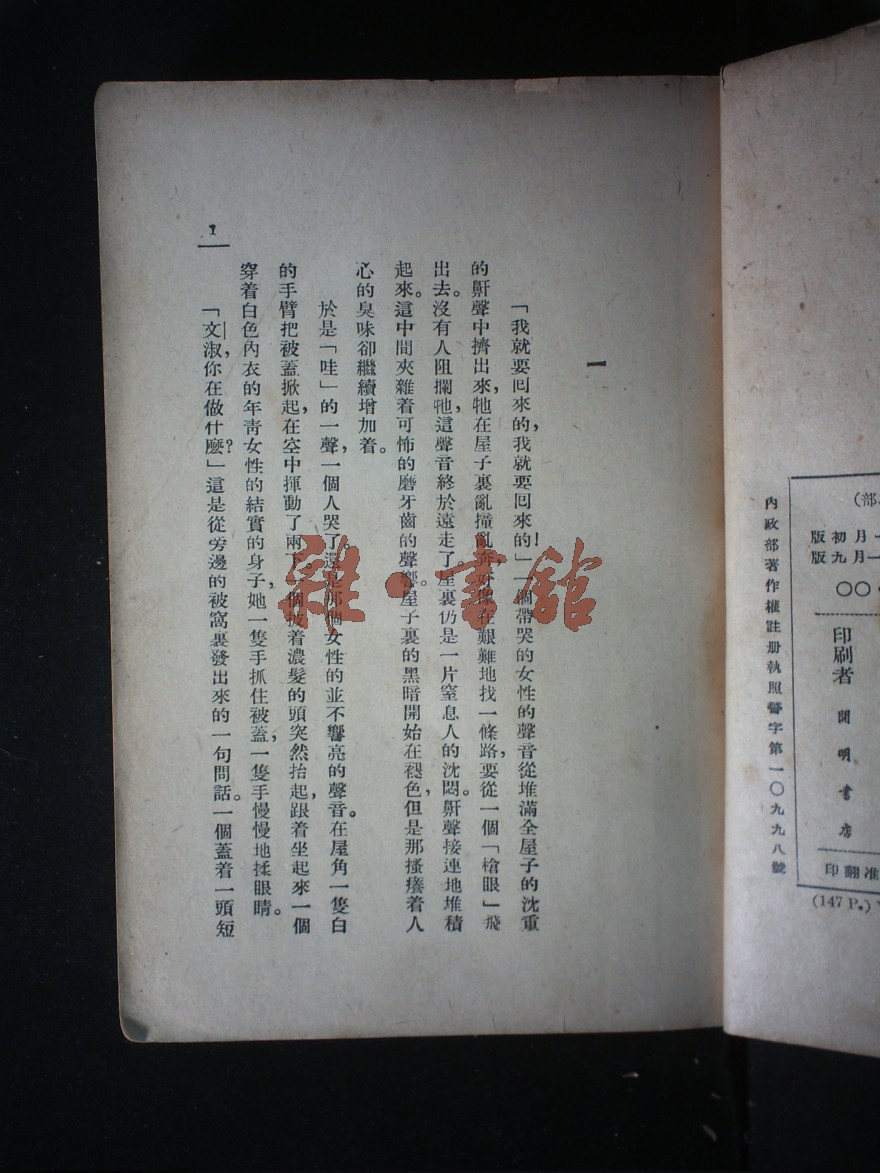 一
「我就要回來的，我就要回來的！」一個帶哭的女性的聲音從堆滿全屋子的沈重
的鼾聲中擠出來，牠在屋子裏亂撞亂奔，好像在艱難地找一條路，要從一個「槍眼」飛
出去。沒有人阻攔牠，這聲音終於遠走了。屋裏仍是一片窒息人的沈悶。鼾聲接連地堆積
起來。這中間夾雜着可怖的磨牙齒的聲響。屋子裏的黑暗開始在褪色，但是那搔癢着人
心的臭味卻繼續增加着。
於是「哇」的一聲，一個人哭了。還是那個女性的並不響亮的聲音。在屋角一隻白
的手臂把被蓋掀起，在空中揮動了兩下，一個披着濃髮的頭突然抬起，跟着坐起來一個
穿着白色內衣的年青女性的結實的身子，她一隻手抓住被蓋，一隻手慢慢地揉眼睛。
「文淑，你在做什麼？」這是從旁邊的被窩裏發出來的一句問話。一個蓋着一頭短
1
雜·書館
月初版
月九版
〇〇
印刷者 開明書店
准翻印
(147 P.)
內政部著作權註册執照警字第一〇九九八號